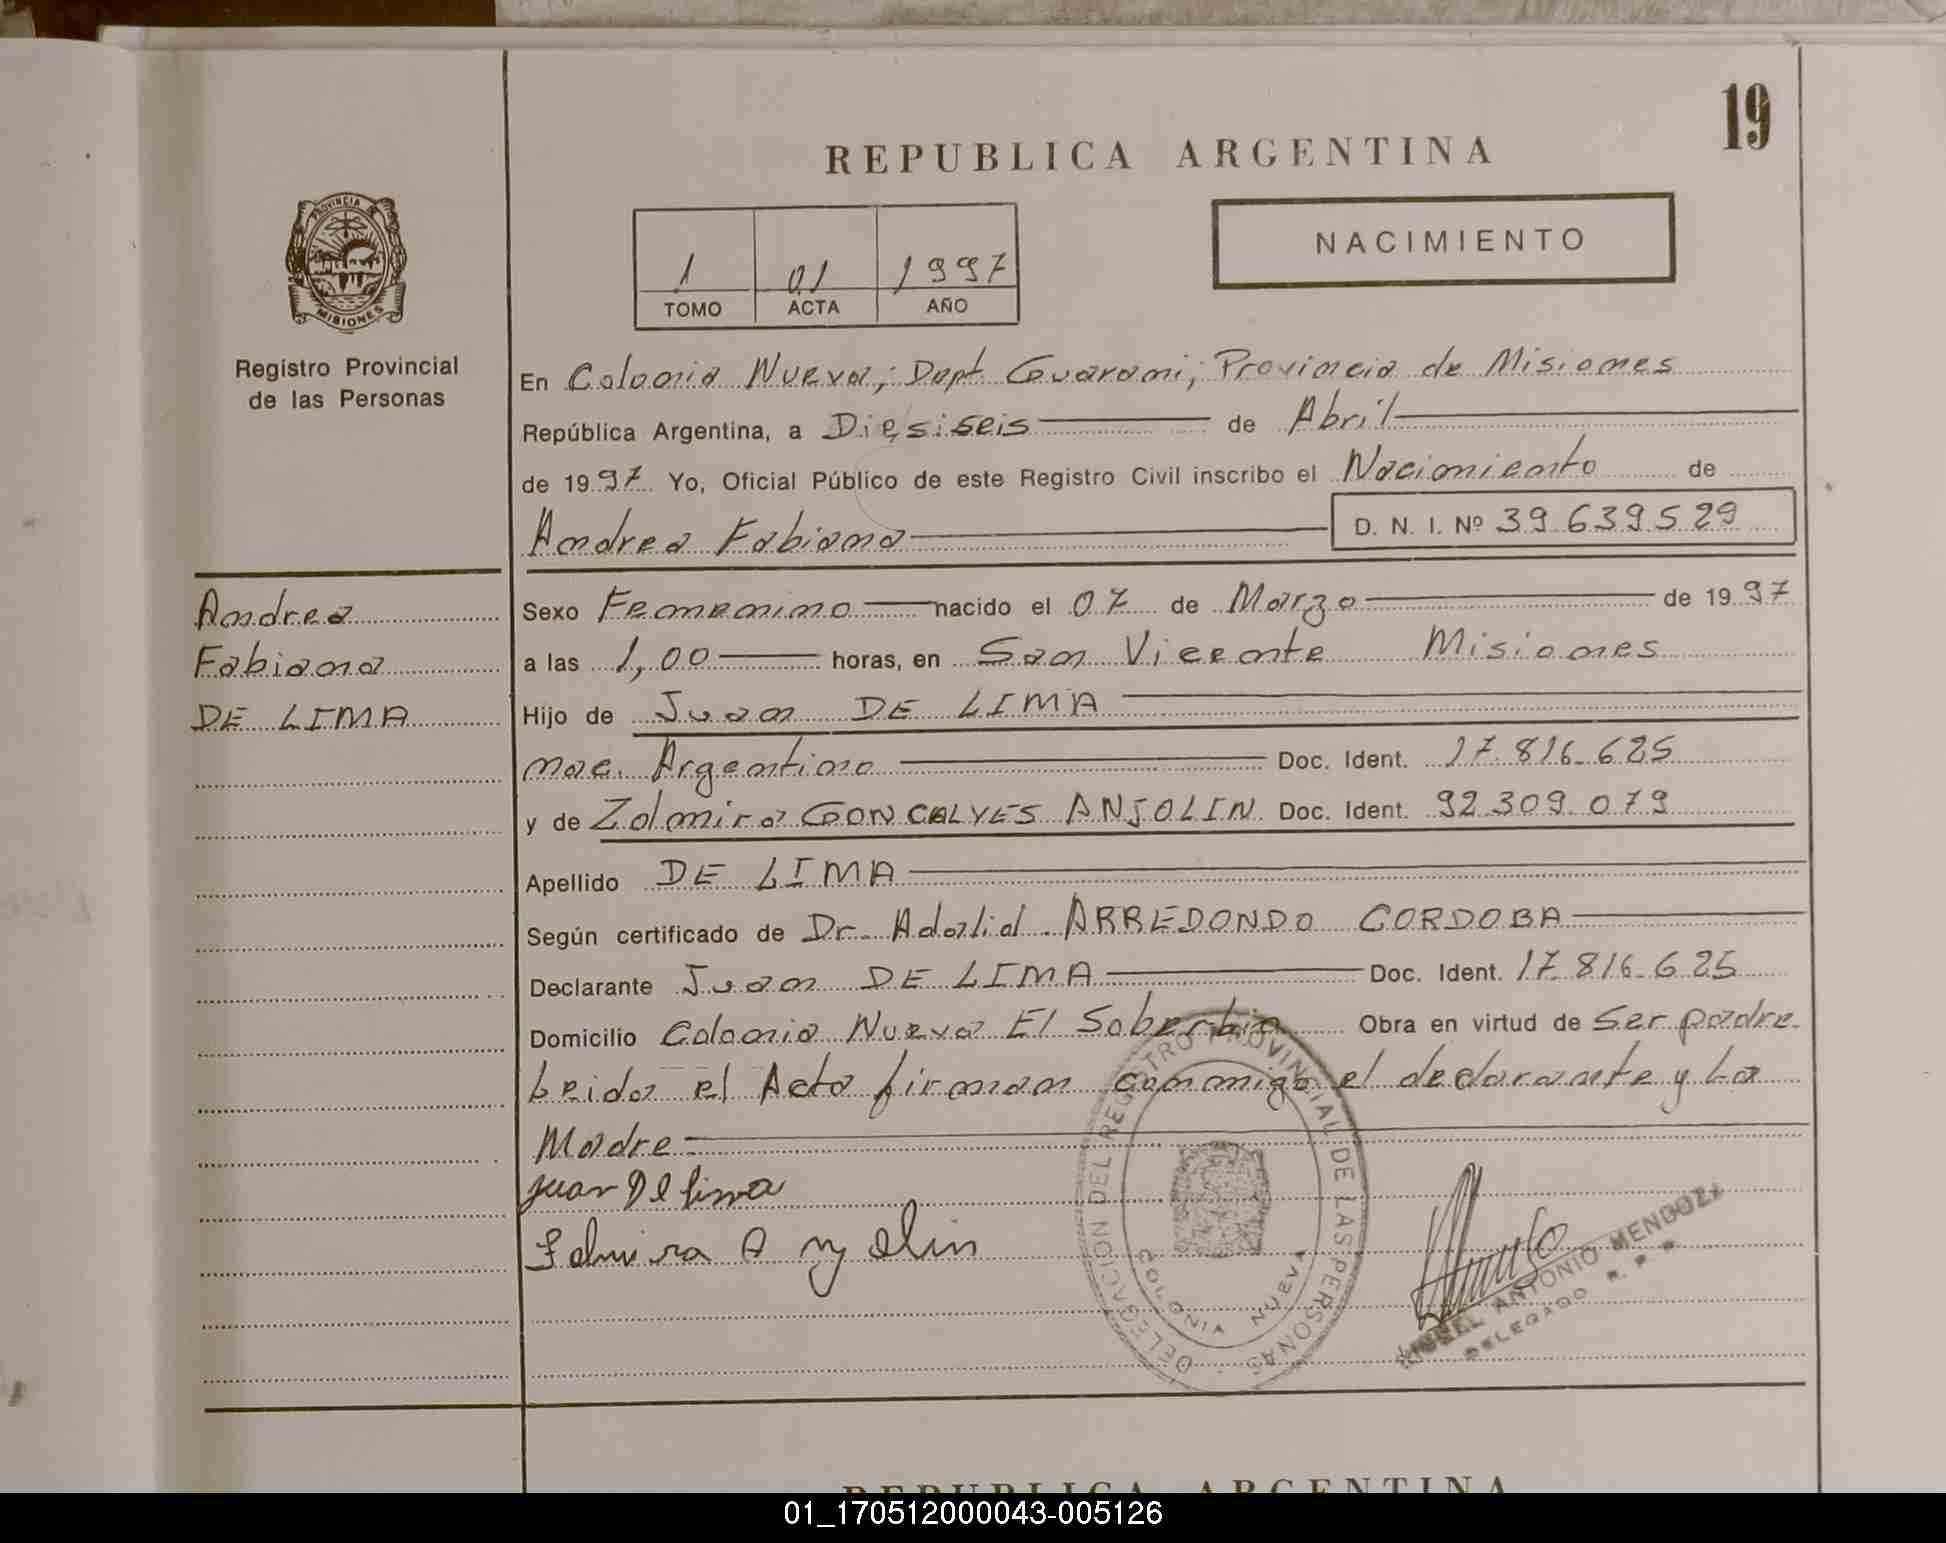 19
REPUBLICA ARGENTINA
PROVINCIA DE
MISIONES
1 01 1997
TOMO ACTA AÑO
NACIMIENTO
Registro Provincial
de las Personas
En Colonia Nueva; Dept. Guarani; Provincia de Misiones
República Argentina, a Diesiseis de Abril
de 1997 Yo, Oficial Público de este Registro Civil inscribo el Nacimiento de
Andrea Fabiana D. N. I. Nº 39639529
Andrea
Fabiana
DE LIMA
Sexo Femenino nacido el 07 de Marzo de 1997
a las 1,00 horas, en San Vicente Misiones
Hijo de Juan DE LIMA
nac. Argentino Doc. Ident. 17.816.625
y de Zolmira GONCALVES ANJOLIN Doc. Ident. 92.309.079
Apellido DE LIMA
Según certificado de Dr. Adalid ARREDONDO CORDOBA
Declarante Juan DE LIMA Doc. Ident. 17.816.625
Domicilio Colonia Nueva El Soberbio Obra en virtud de Ser padre
Leida el Acta firman conmigo el declarante y La
Madre
Juan De lima
DELEGACION DEL REGISTRO PROVINCIAL DE LAS PERSONAS
COLONIA NUEVA
ANTONIO MENDOZA
DELEGADO R. P. P.
REPUBLICA ARGENTINA
01_170512000043-005126